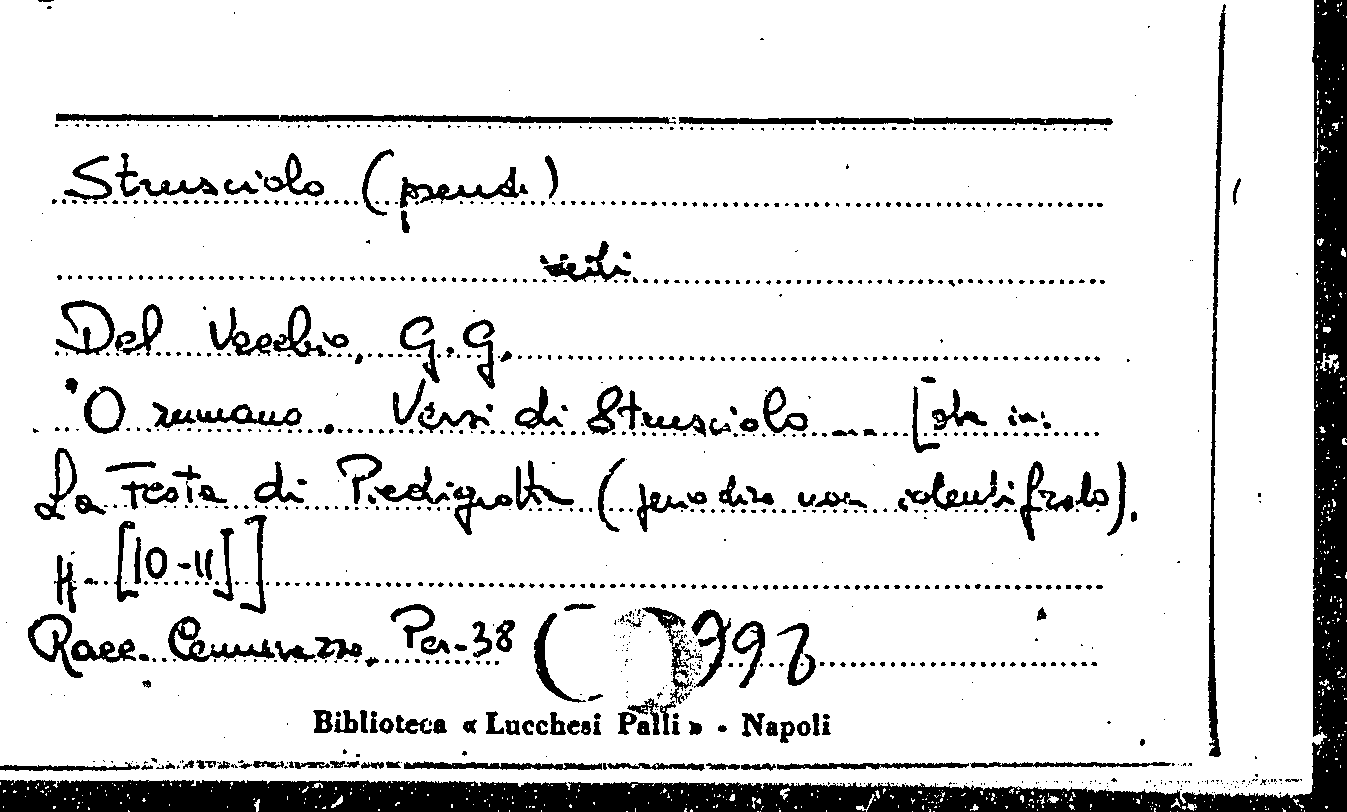 Strusciolo (pseud.)
vedi
Del Vecchio, G.G.
'O rumano. Versi di Strusciolo ... [sta in:
La Festa di Piedigrotta (periodico non identificato).
pp. [10-11]]
Racc. Per. 38
Biblioteca « Lucchesi Palli » - Napoli